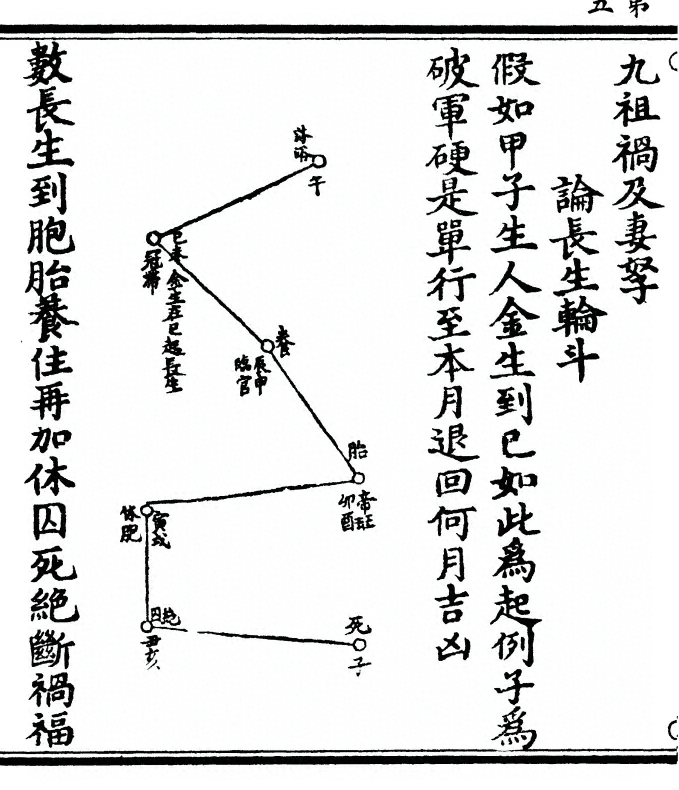 第五
九祖禍及妻孥
論長生輪斗
假如甲子生人金生到巳如此為起例子為
破軍硬是單行至本月退回何月吉凶
沐浴
午
巳未金生在巳起長生
冠帶
養
辰申
臨官
胎
帝旺
卯酉
寅戌
休胞
囚絕
丑亥
死
子
數長生到胞胎養住再加休囚死絕斷禍福